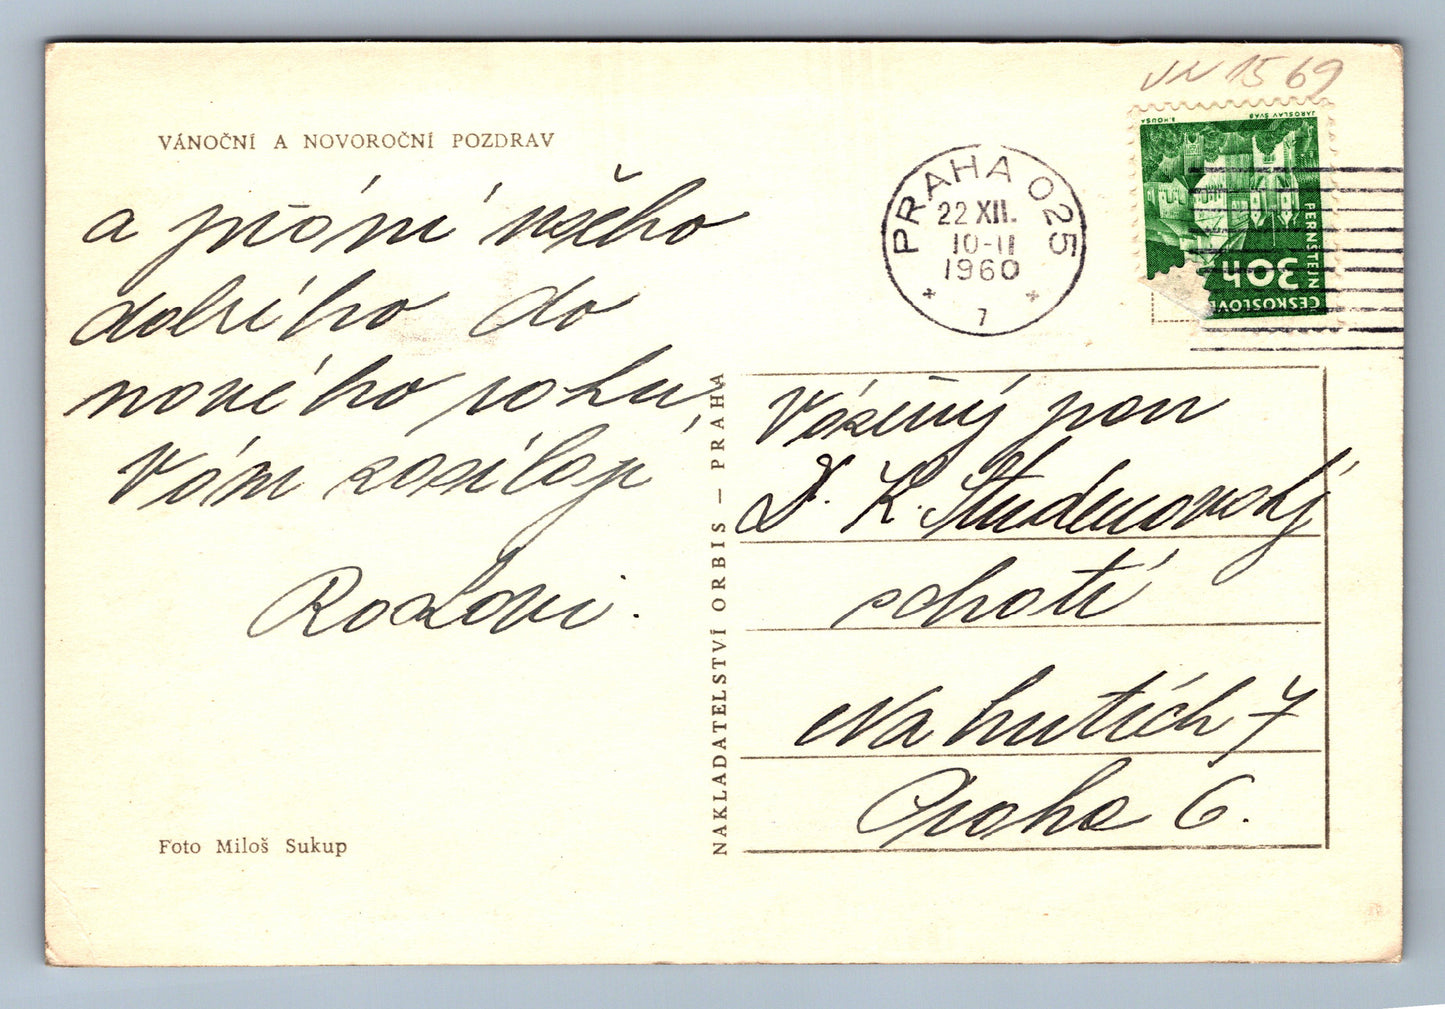 VÁNOČNÍ A NOVOROČNÍ POZDRAV
a přání všeho
dobrého do
nového roku,
Vám zasílají
Foto Miloš Sukup
NAKLADATELSTVÍ ORBIS — PRAHA
PRAHA 025
22 XII.
10-11
1960
7
VN 1569
B. HOUSA
JAROSLAV ŠVÁB
PERNŠTEJN
30h
ČESKOSLOVE
Vážený pan
D. K. Studenovský
s chotí
Na hutích 7
Praha 6.